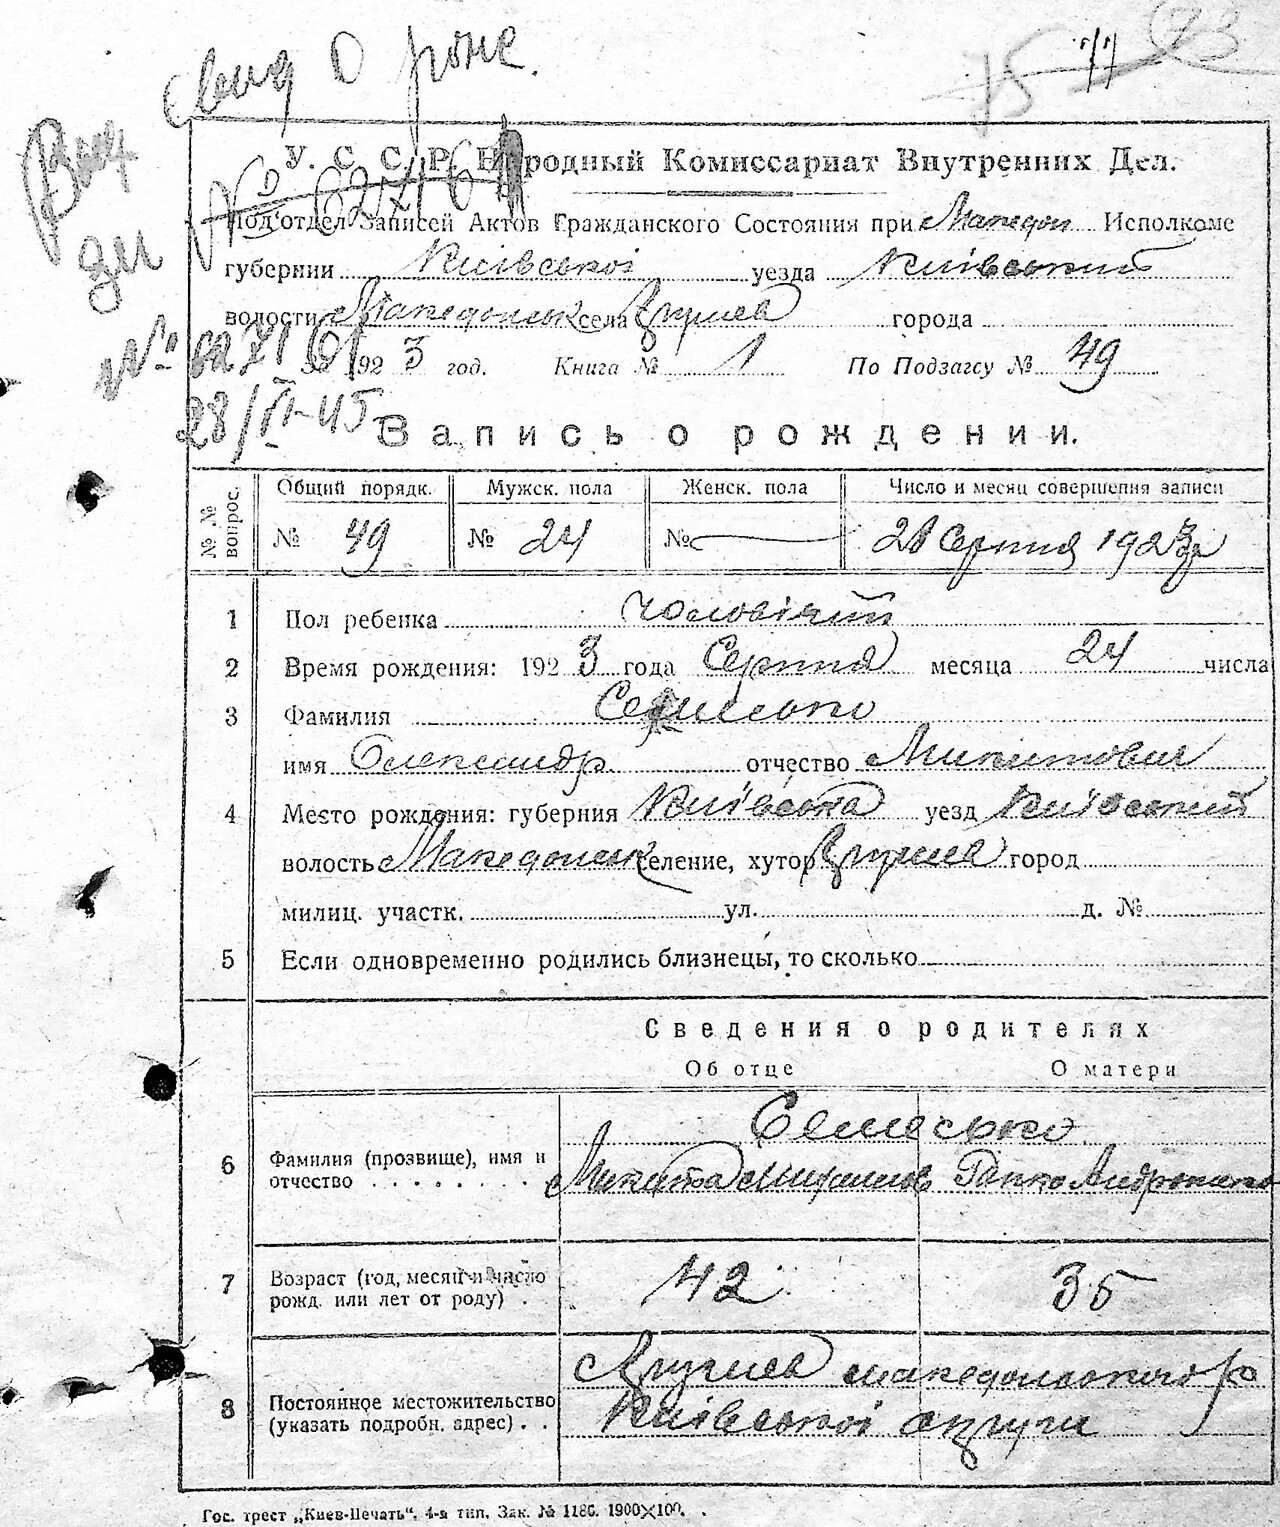 Свид о рожд.
75 77 73
Выд
У. С. С. Р. Народный Комиссариат Внутренних Дел.
Под'отдел Записей Актов Гражданского Состояния при Македон Исполкоме
губернии Київської уезда Київський
волости Македонськ села города
За 1923 год. Книга № 1 По Подзагсу № 49
28/VI-45
Запись о рождении.
№№ вопрос. Общий порядк. Мужск. пола Женск. пола Число и месяц совершения записи
№ 49 № 24 № 28 Серпня 1923 р
1 Пол ребенка чоловічий
2 Время рождения: 1923 года Серпня месяца 24 числа
3 Фамилия Семесько
имя Олександр отчество Микитович
4 Место рождения: губерния Київська уезд Київський
волость Македонськ селение, хутор город
милиц. участк. ул. д. №
5 Если одновременно родились близнецы, то сколько
Сведения о родителях
Об отце О матери
Семесько
6 Фамилия (прозвище), имя и отчество Микита Михайлов Ганна Андронико
7 Возраст (год, месяц и число рожд. или лет от роду) 42 35
8 Постоянное местожительство (указать подробн. адрес) македонського р
Київської округи
Гос. трест „Киев-Печать“. 4-я тип. Зак. № 1186. 1900×100.